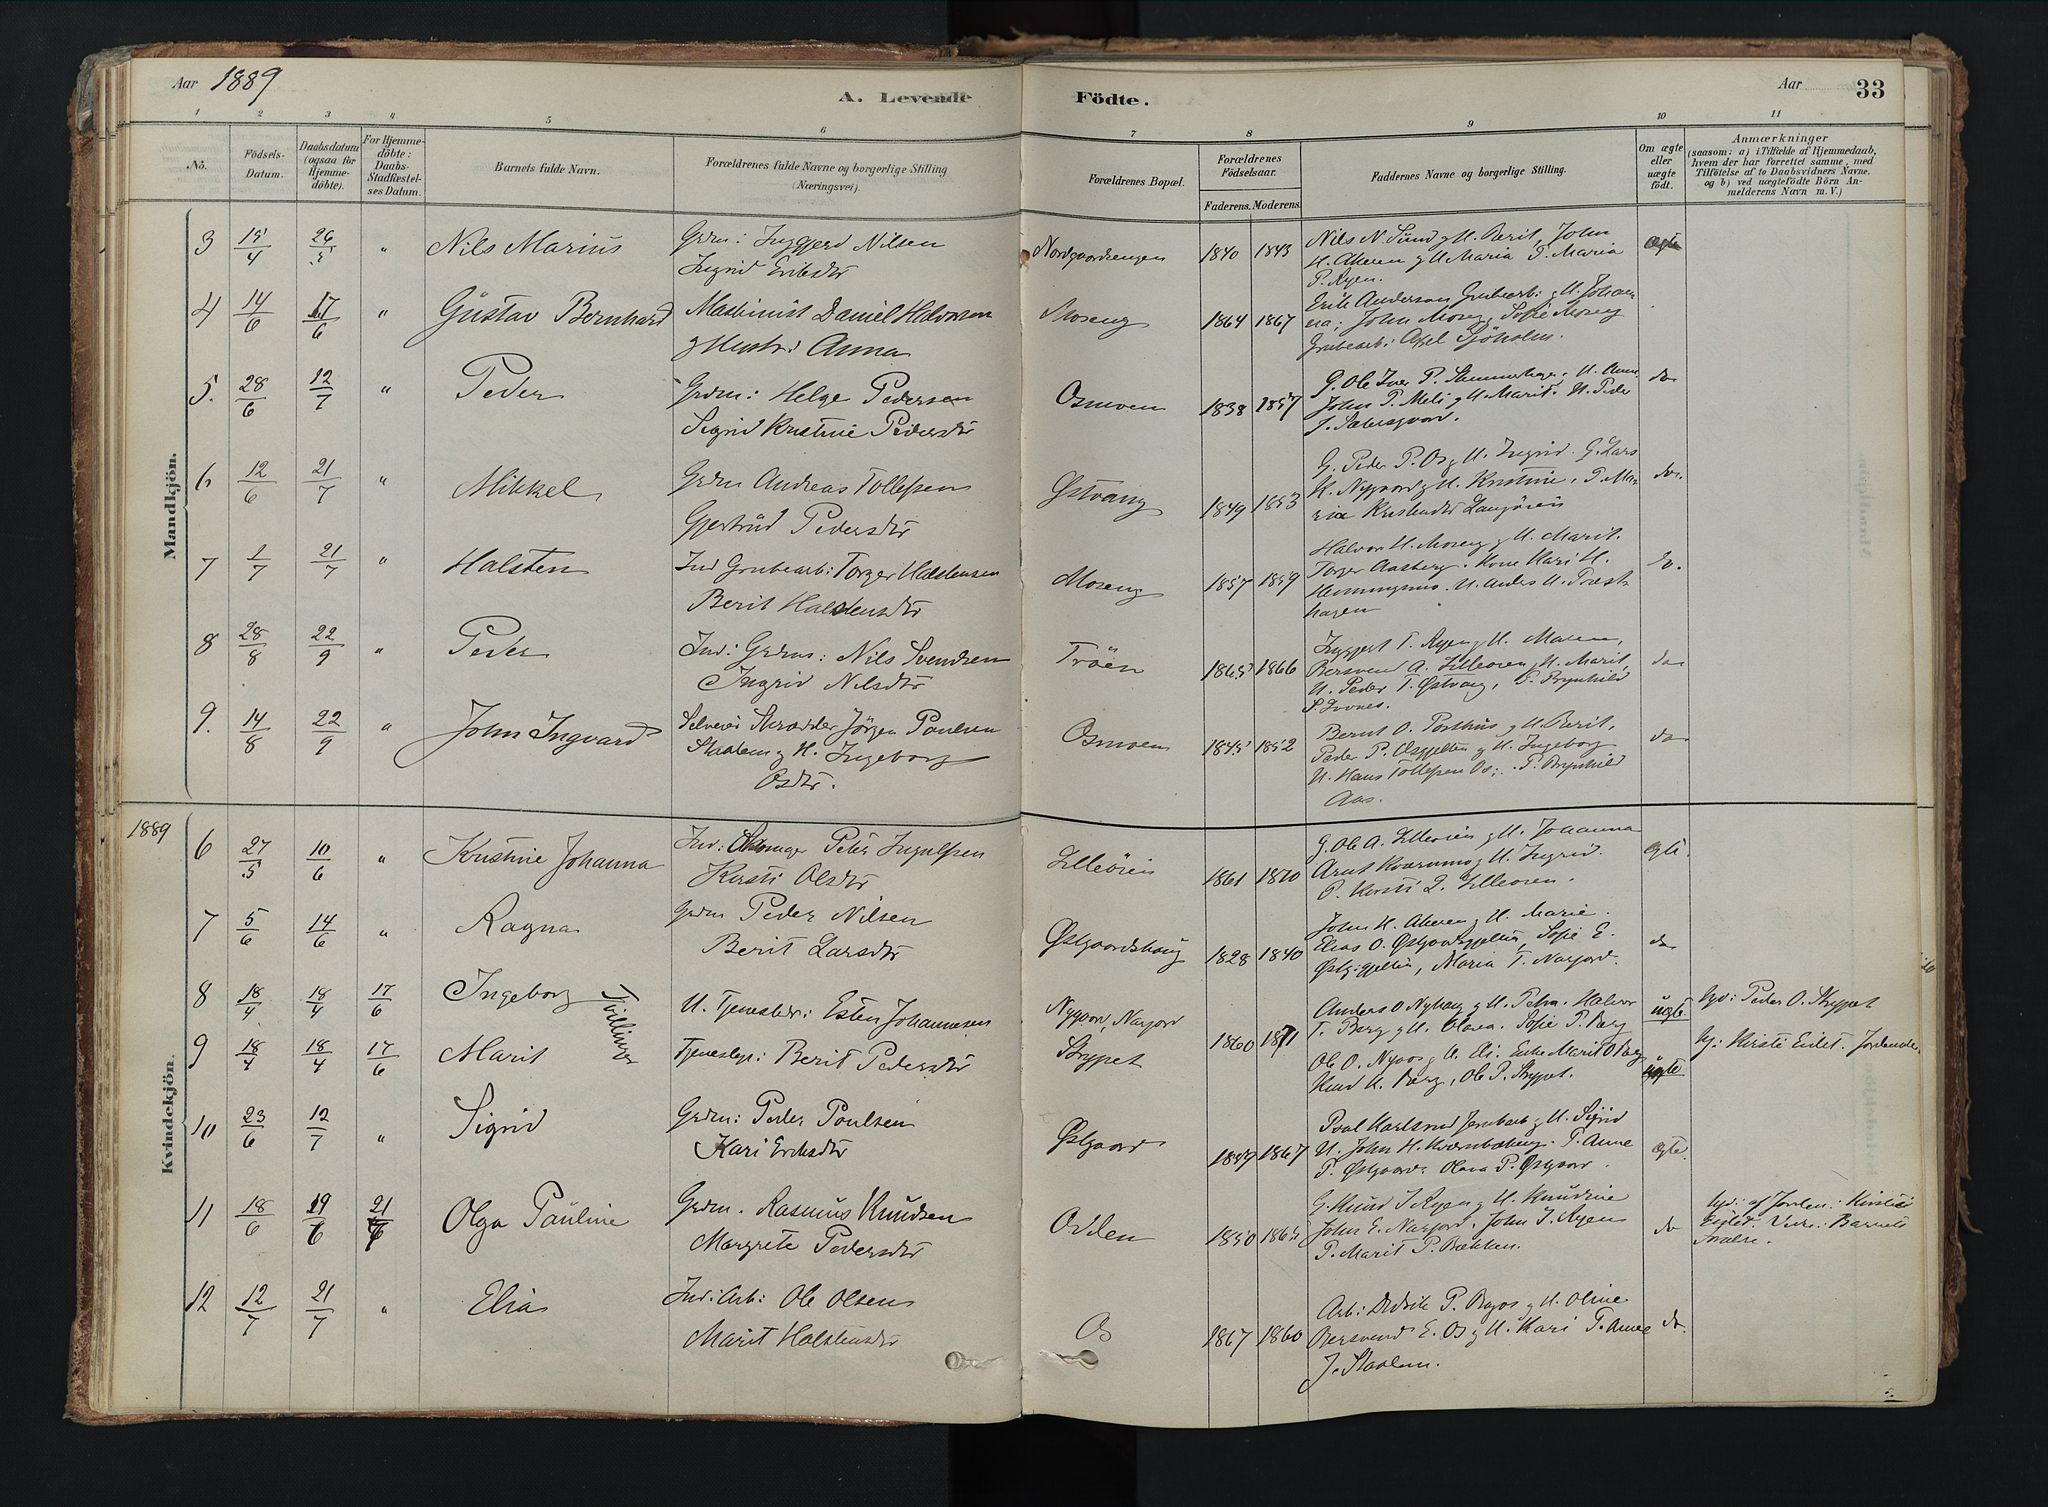 Aar 1889
A. Levende Födte.
Aar 33
1 2 3 4 5 6 7 8 9 10 11
No.
Födsels-Datum.
Daabsdatum (ogsaa for Hjemmedöbte).
For Hjemmedöbte: Daabs-Stadfæstelses Datum.
Barnets fulde Navn.
Forældrenes fulde Navne og borgerlige Stilling (Næringsvei).
Forældrenes Bopæl.
Forældrenes Födselsaar.
Faderens. Moderens.
Faddernes Navne og borgerlige Stilling.
Om ægte eller uægte födt.
Anmærkninger
(saasom: a) i Tilfælde af Hjemmedaab, hvem der har forrettet samme, med Tilföielse af to Daabsvidners Navne, og b) ved uægtefödte Börn Anmelderens Navn m. V.)
Mandkjön.
3 15/4 26/5 " Nils Marius Grdm: Inggjerd Nilsen
Ingrid Eriksdtr
Nordgaardsengen 1840 1843 Nils N. Sund g H. Berit, John
H. Akeren g H Maria P. Maria
P. Ryen.
ægte
4 14/6 17/6 " Gustav Bernhard Maskinist Daniel Halvorsen
g Hustr: Anna
Moseng 1864 1867 Erik Anderson Grubearb: g H. Johan-
na; John Moseng, Sofie Moseng
Grubearb: Axel Sjöholm.
5. 28/6 12/7 " Peder Grdm: Helge Pedersen
Sigrid Kristine Pedersdtr
Osmoen 1838 1857 G. Ole Iver P.
John P. Meli g H. Marit. U. Peder
J.
do
6 12/6 21/7 " Mikkel Grdm Andreas Tollefsen
Gjertrud Pedersdtr
Østvang 1849 1853 G. Peder P. Os g H. Ingrid. G. Lars
K. Nygaard g H. Kristine, P. Ma-
ria Langöien
do.
7 1/7 21/7 " Halsten Ind Grubearb: Torger Halstensen
Berit Halstensdtr
Moseng 1857 1859 Halvor H. Moseng g H. Marit.
Torger Aasberg. Kone Kari H.
Hemmingsmo. U. Anders U. Præst-
hagen
do.
8 28/8 22/9 " Peder Ind: Grdm: Nils Svendsen
Ingrid Nilsdtr
Tröen 1865 1866 T. Ryen g H. Maren,
Bersvend A. Lilleöien g H. Marit,
U. Peder T. Østvang, P. Brynhild
do
9. 14/8 22/9 " John Ingvard Selveier Skrædder Jörgen Poulsen
Staalem g H. Ingeborg
Osdtr.
Osmoen 1845 1852 Bernt O. Posthus g H. Berit,
Peder P. g H. Ingeborg
U. Hans Tollefsen Os; P. Brynhild
Aas.
do
1889
Kvindekjön.
6 27/5 10/6 " Kristine Johanna Ind: Peter Ingulfsen
Kirsti Olsdtr
Lilleöien 1861 1870 G. Ole A. Lilleöien g H. Johanna
Arnt g H. Ingrid.
P. Kirsti Lilleöien.
ægte.
7 5/6 14/6 " Ragna Grdm Peder Nilsen
Berit Larsdtr
Østgaardshaug 1828 1840 John H. Akeren g H. Marie.
Elias O. Østgaardsgjelten, Sofie E.
Østg:gjelten, Maria T. Narjord.
do
8 18/4 18/4 17/6 Ingeborg Tvillinger U. Tjenestdr: Esten Johannesen
Nygaard, Narjord
1860 1871 Anders O Nyhaug g H. Petra. Halvor
T. Berg g H. Olava. Sofie P. Berg
uægte
Hjd: Peder O. Strypet
9 18/4 18/4 17/6 Marit Tjenestep: Berit Pedersdtr
Strypet
Ole O. Nyvos g H. Eli. Enke Marit O Berg
Knud K. Berg, Ole P. Strypet.
uægte
Hj: Kirsti Eidet. Jordende.
10 23/6 12/7 " Sigrid Grdm: Peder Poulsen
Kari Eriksdtr
Østgaard 1859 1867 Poul Karlsrud Jernbarb g H. Sigrid
U. John H. P. Anne
P. Østgaard. Olava P. Østgaard.
ægte.
11 18/6 19/6 21/6 Olga Pauline Grdm. Rasmus Knudsen
Margrete Pedersdtr
Odden 1850 G. Knud J. Ryen g H. Knudine
John E. Narjord. John J. Ryen
P. Marit P. Bækken.
do
Hjd: af Jordm: Kirstie
Eidet. Vidre: Barnets
Foræld.
12 12/7 21/7 " Elia Ind: Arb: Ole Olsen
Marit Halstensdtr
Os 1867 1860 Arb: Didrik P. g H. Oline
Bersvend E. Os g H. Kari P. Anne
J. Staalem.
do.